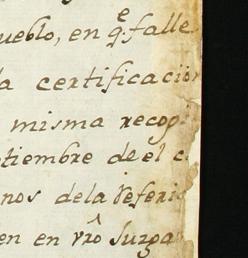 ueblo, en q.e falle
la certificación
misma recop
tiembre de el c
nos dela referi
en en vrô Juzga